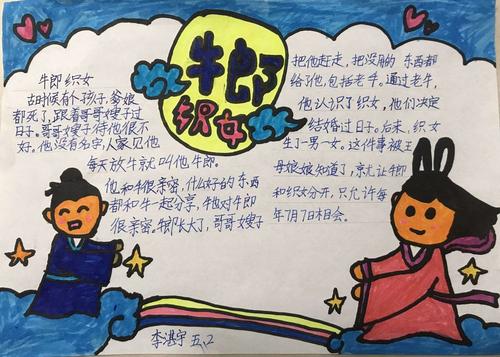 牛郎
织女
牛郎织女
古时候有个孩子,爹娘
都死了,跟着哥哥嫂子过
日子。哥哥嫂子待他很不
好。他没有名字,人家见他
每天放牛就叫他牛郎。
他和牛很亲密,什么好的东西
都和牛一起分享,牛他对牛郎
很亲密。牛郎长大了,哥哥嫂子
把他赶走,把没用的东西都
给了他,包括老牛。通过老牛,
他认识了织女,他们决定
结婚过日子。后来,织女
生了一男一女。这件事被王
母娘娘知道了,就让牛郎
和织女分开,只允许每
年7月7日相会。
李湛宇 五、2